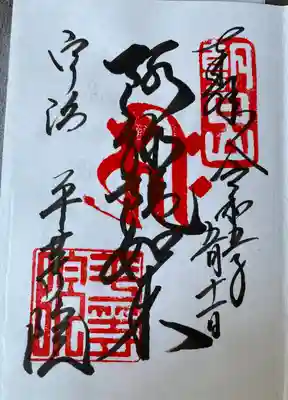 朝日山
奉拝 令和五年
月十一日
阿弥陀如来
宇治 平等院